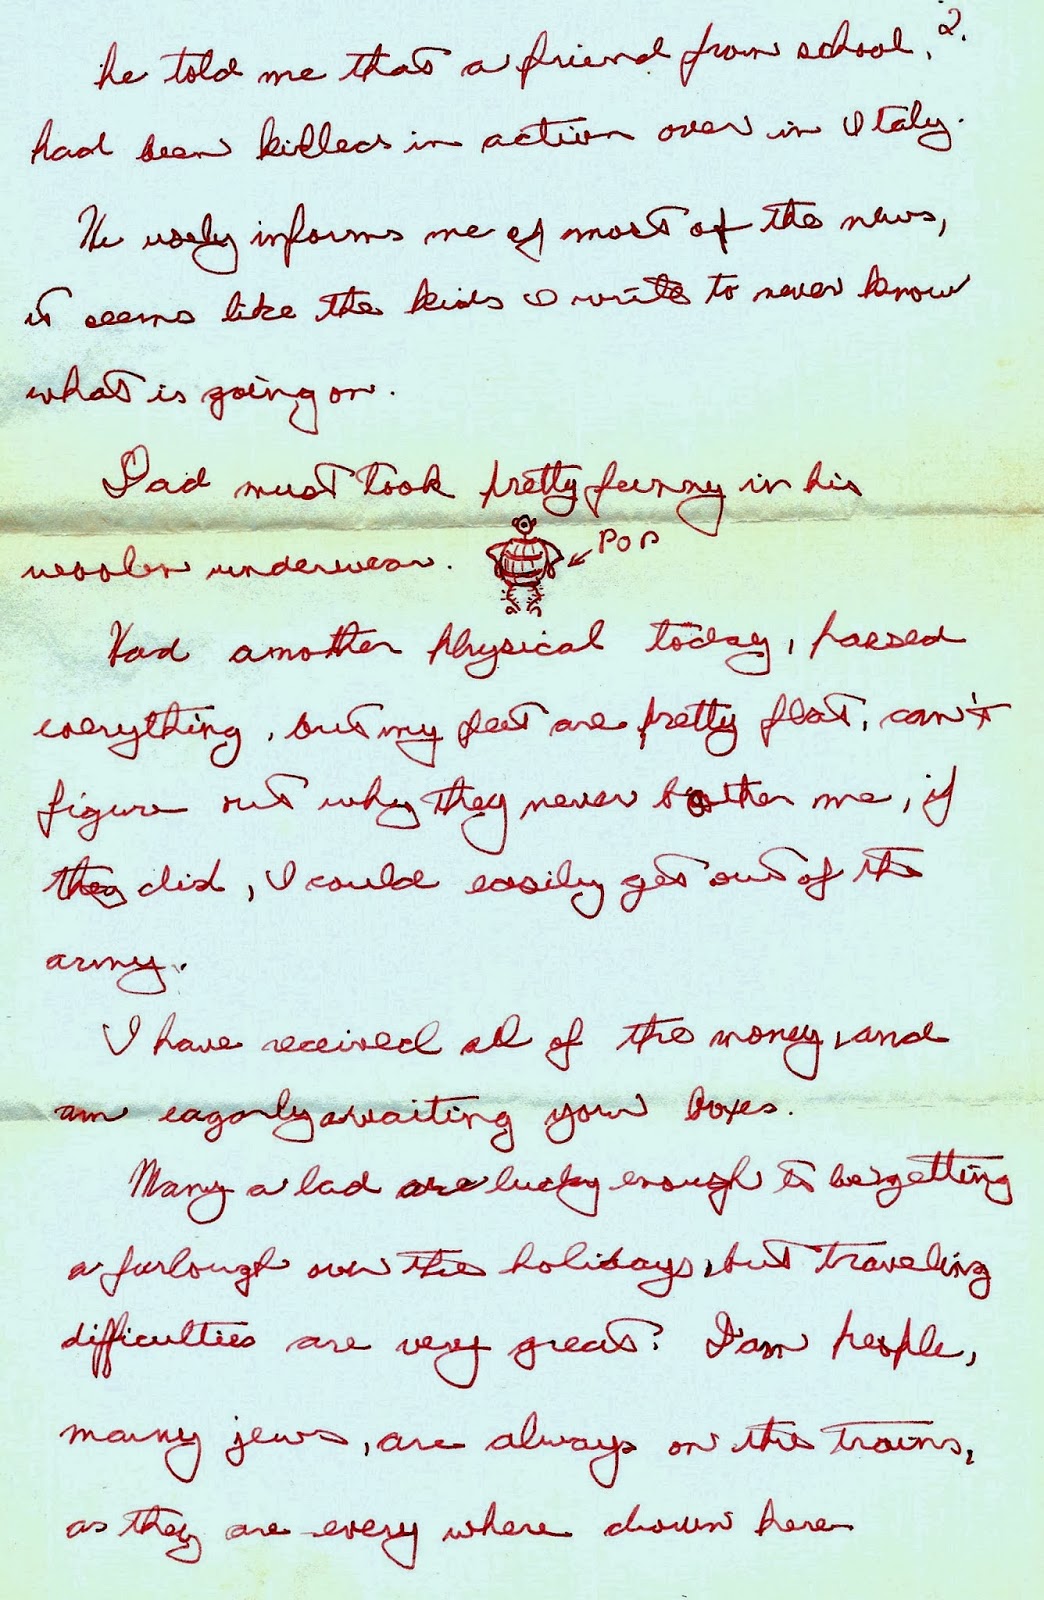 2.
he told me that a friend from school,
had been killed in action over in Italy.
He usely informs me of most of the news,
it seems like the kids I write to never know
what is going on.
Dad must look pretty funny in his
woolen underwear. POP
Had another physical today, passed
everything, but my feet are pretty flat, can't
figure out why they never bother me, if
they did, I could easily get out of the
army.
I have received all of the money, and
am eagerly awaiting your boxes.
Many a lad are lucky enough to be getting
a furlough over the holidays, but traveling
difficulties are very great? people,
many jews, are always on the trains,
as they are every where down here